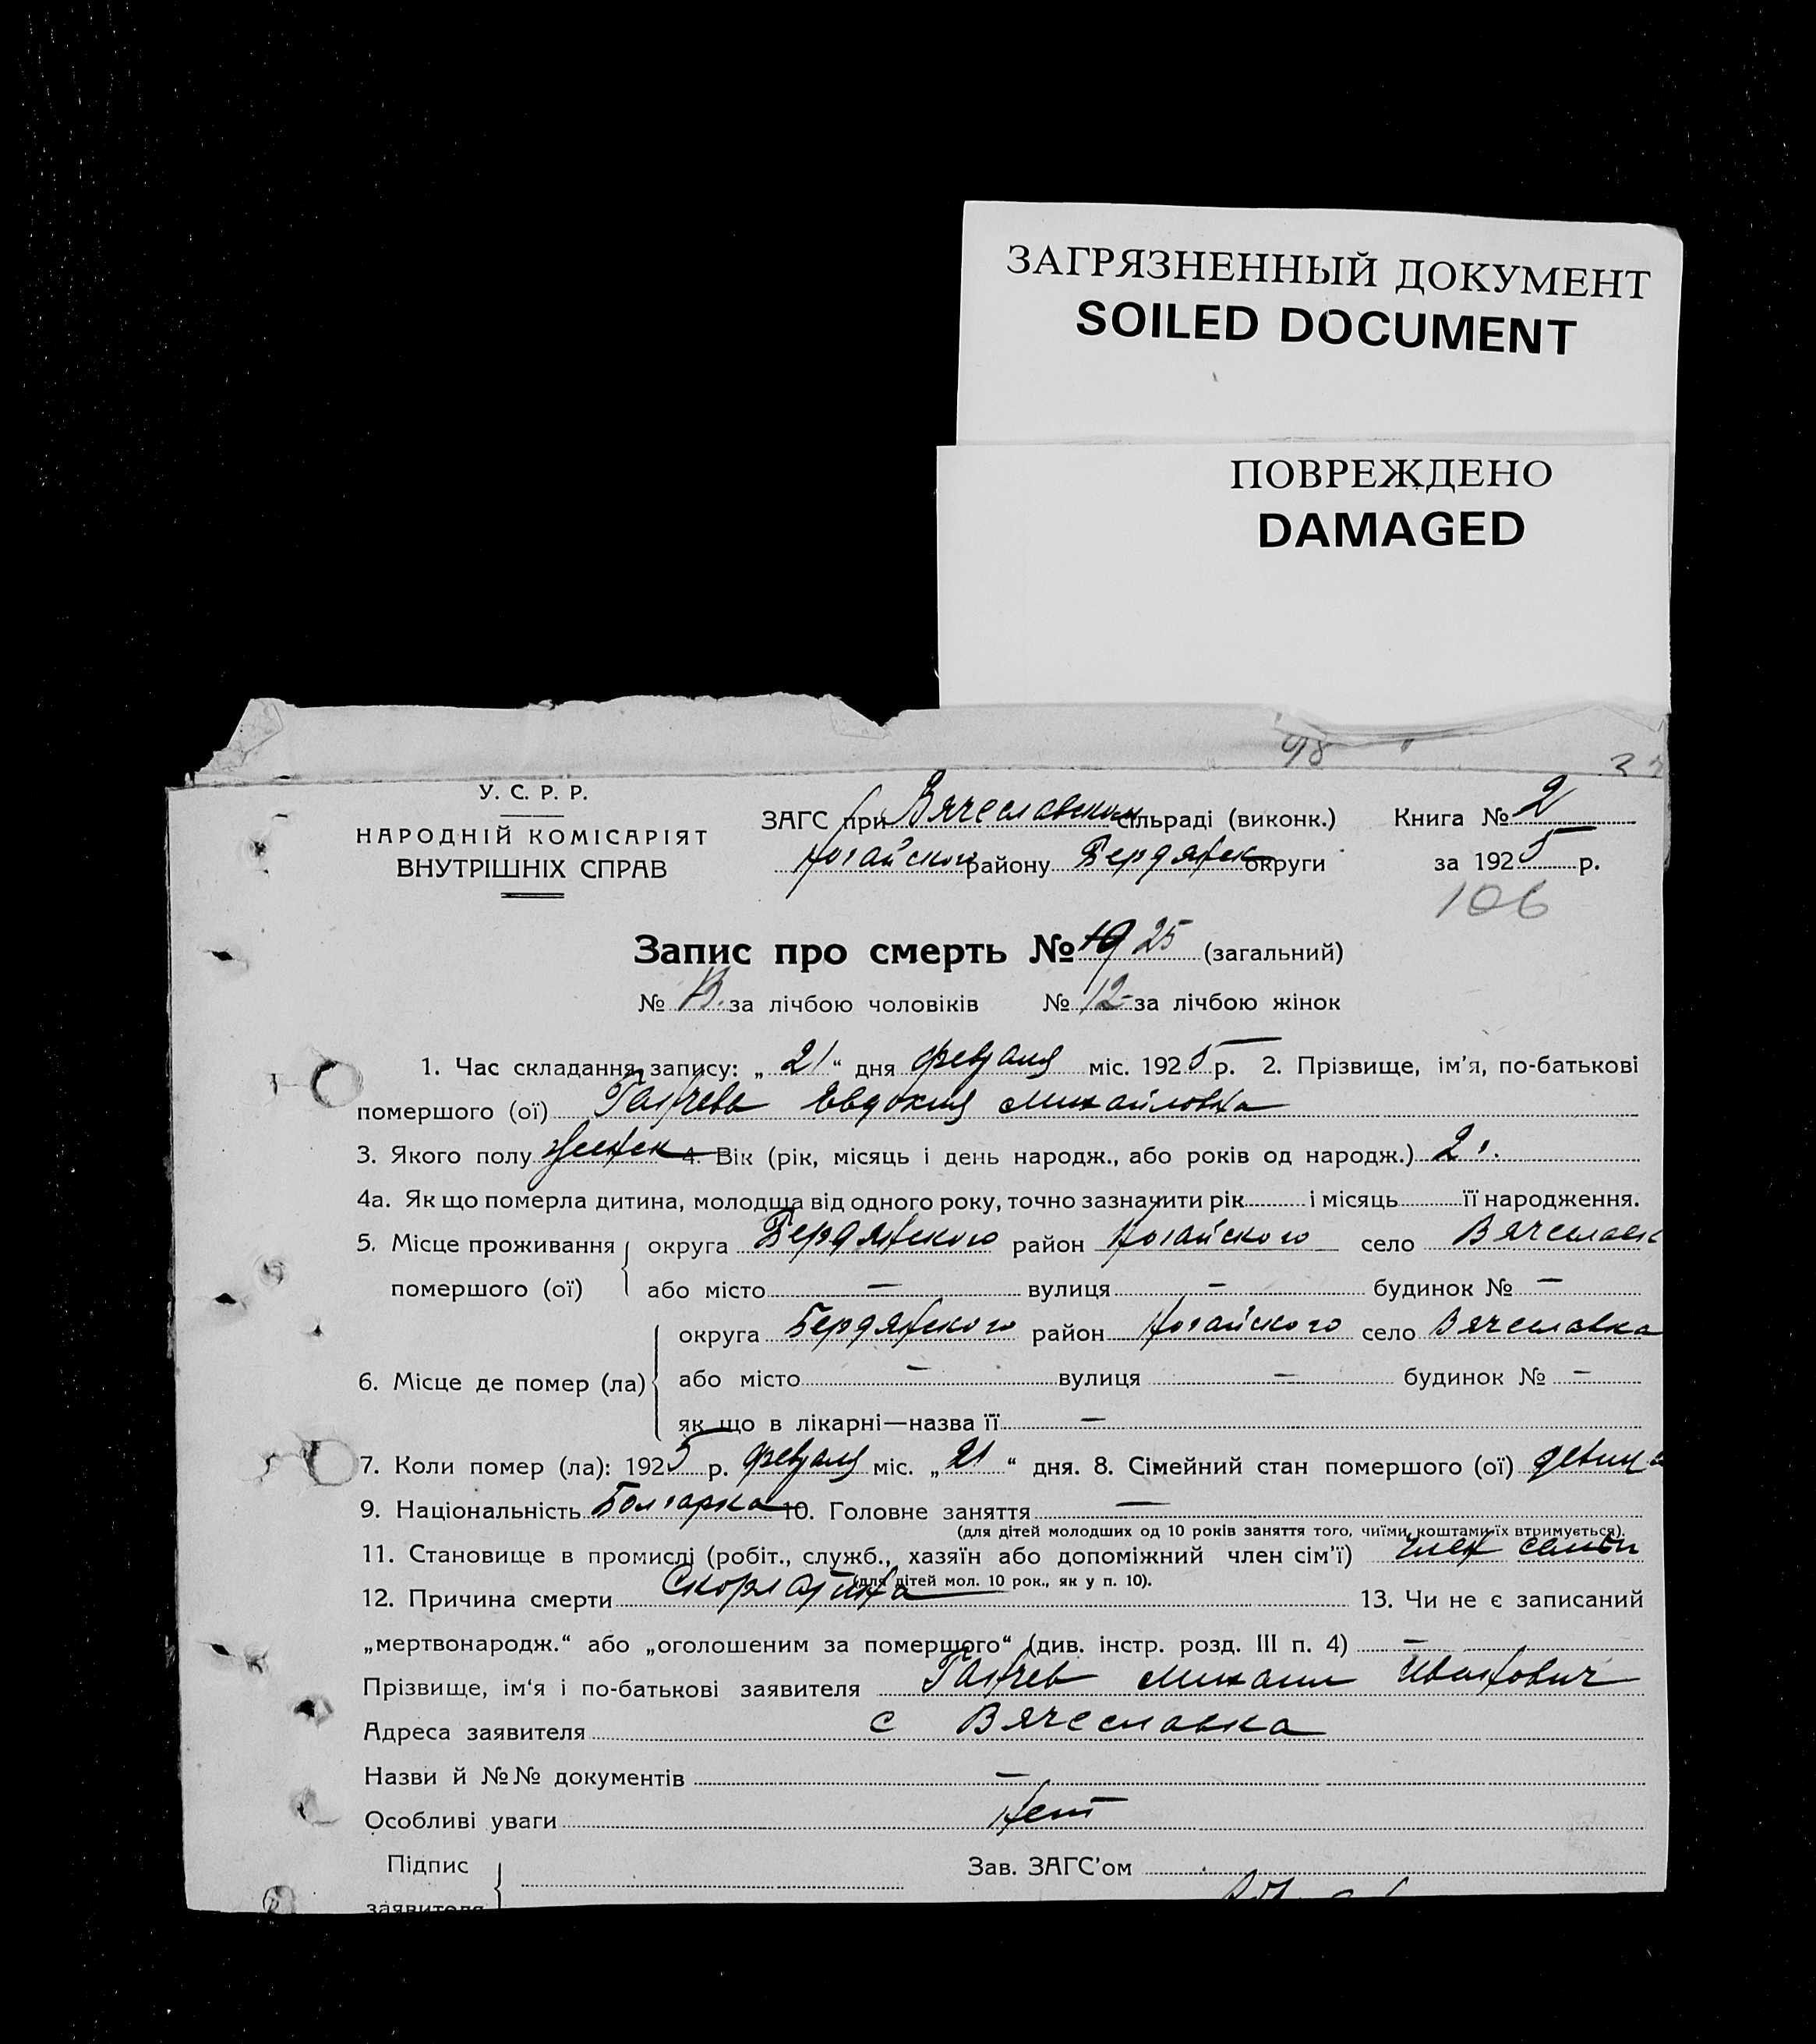 ЗАГРЯЗНЕННЫЙ ДОКУМЕНТ
SOILED DOCUMENT
ПОВРЕЖДЕНО
DAMAGED
98
У. С. Р. Р.
НАРОДНІЙ КОМІСАРІЯТ
ВНУТРІШНІХ СПРАВ
ЗАГС при Вячеславским сільраді (виконк.) Книга № 2
Ногайского району Бердянск округи за 1925 р.
106
Запис про смерть № 19 25 (загальний)
№ 13. за лічбою чоловіків № 12 за лічбою жінок
1. Час складання запису: „ 21 “ дня февраля міс. 1925 р. 2. Прізвище, ім’я, по-батькові
помершого (ої) Ганчева Евдокия Михайловна
3. Якого полу женск 4. Вік (рік, місяць і день народж., або років од народж.) 2 г.
4а. Як що померла дитина, молодща від одного року, точно зазначити рік і місяць її народження.
5. Місце проживання округа Бердянского район Ногайского село Вячеславк
помершого (ої) або місто — вулиця — будинок № —
округа Бердянского район Ногайского село Вячеславка
6. Місце де помер (ла) або місто — вулиця — будинок № —
як що в лікарні—назва її —
7. Коли помер (ла): 1925 р. февраля міс. „ 21 “ дня. 8. Сімейний стан помершого (ої) девица
9. Національність Болгарка 10. Головне заняття —
(для дітей молодших од 10 років заняття того, чиїми коштами їх втримується).
11. Становище в промислі (робіт., служб., хазяїн або допоміжний член сім’ї) член семьи
(для дітей мол. 10 рок., як у п. 10).
12. Причина смерти Скорлатина 13. Чи не є записаний
„мертвонародж.“ або „оголошеним за померщого“ (див. інстр. розд. III п. 4) —
Прізвище, ім‘я і по-батькові заявителя Ганчев Михаил Иванович
Адреса заявителя с Вячеславка
Назви й №№ документів —
Особливі уваги Нет
Підпис Зав. ЗАГС’ом
заявителя